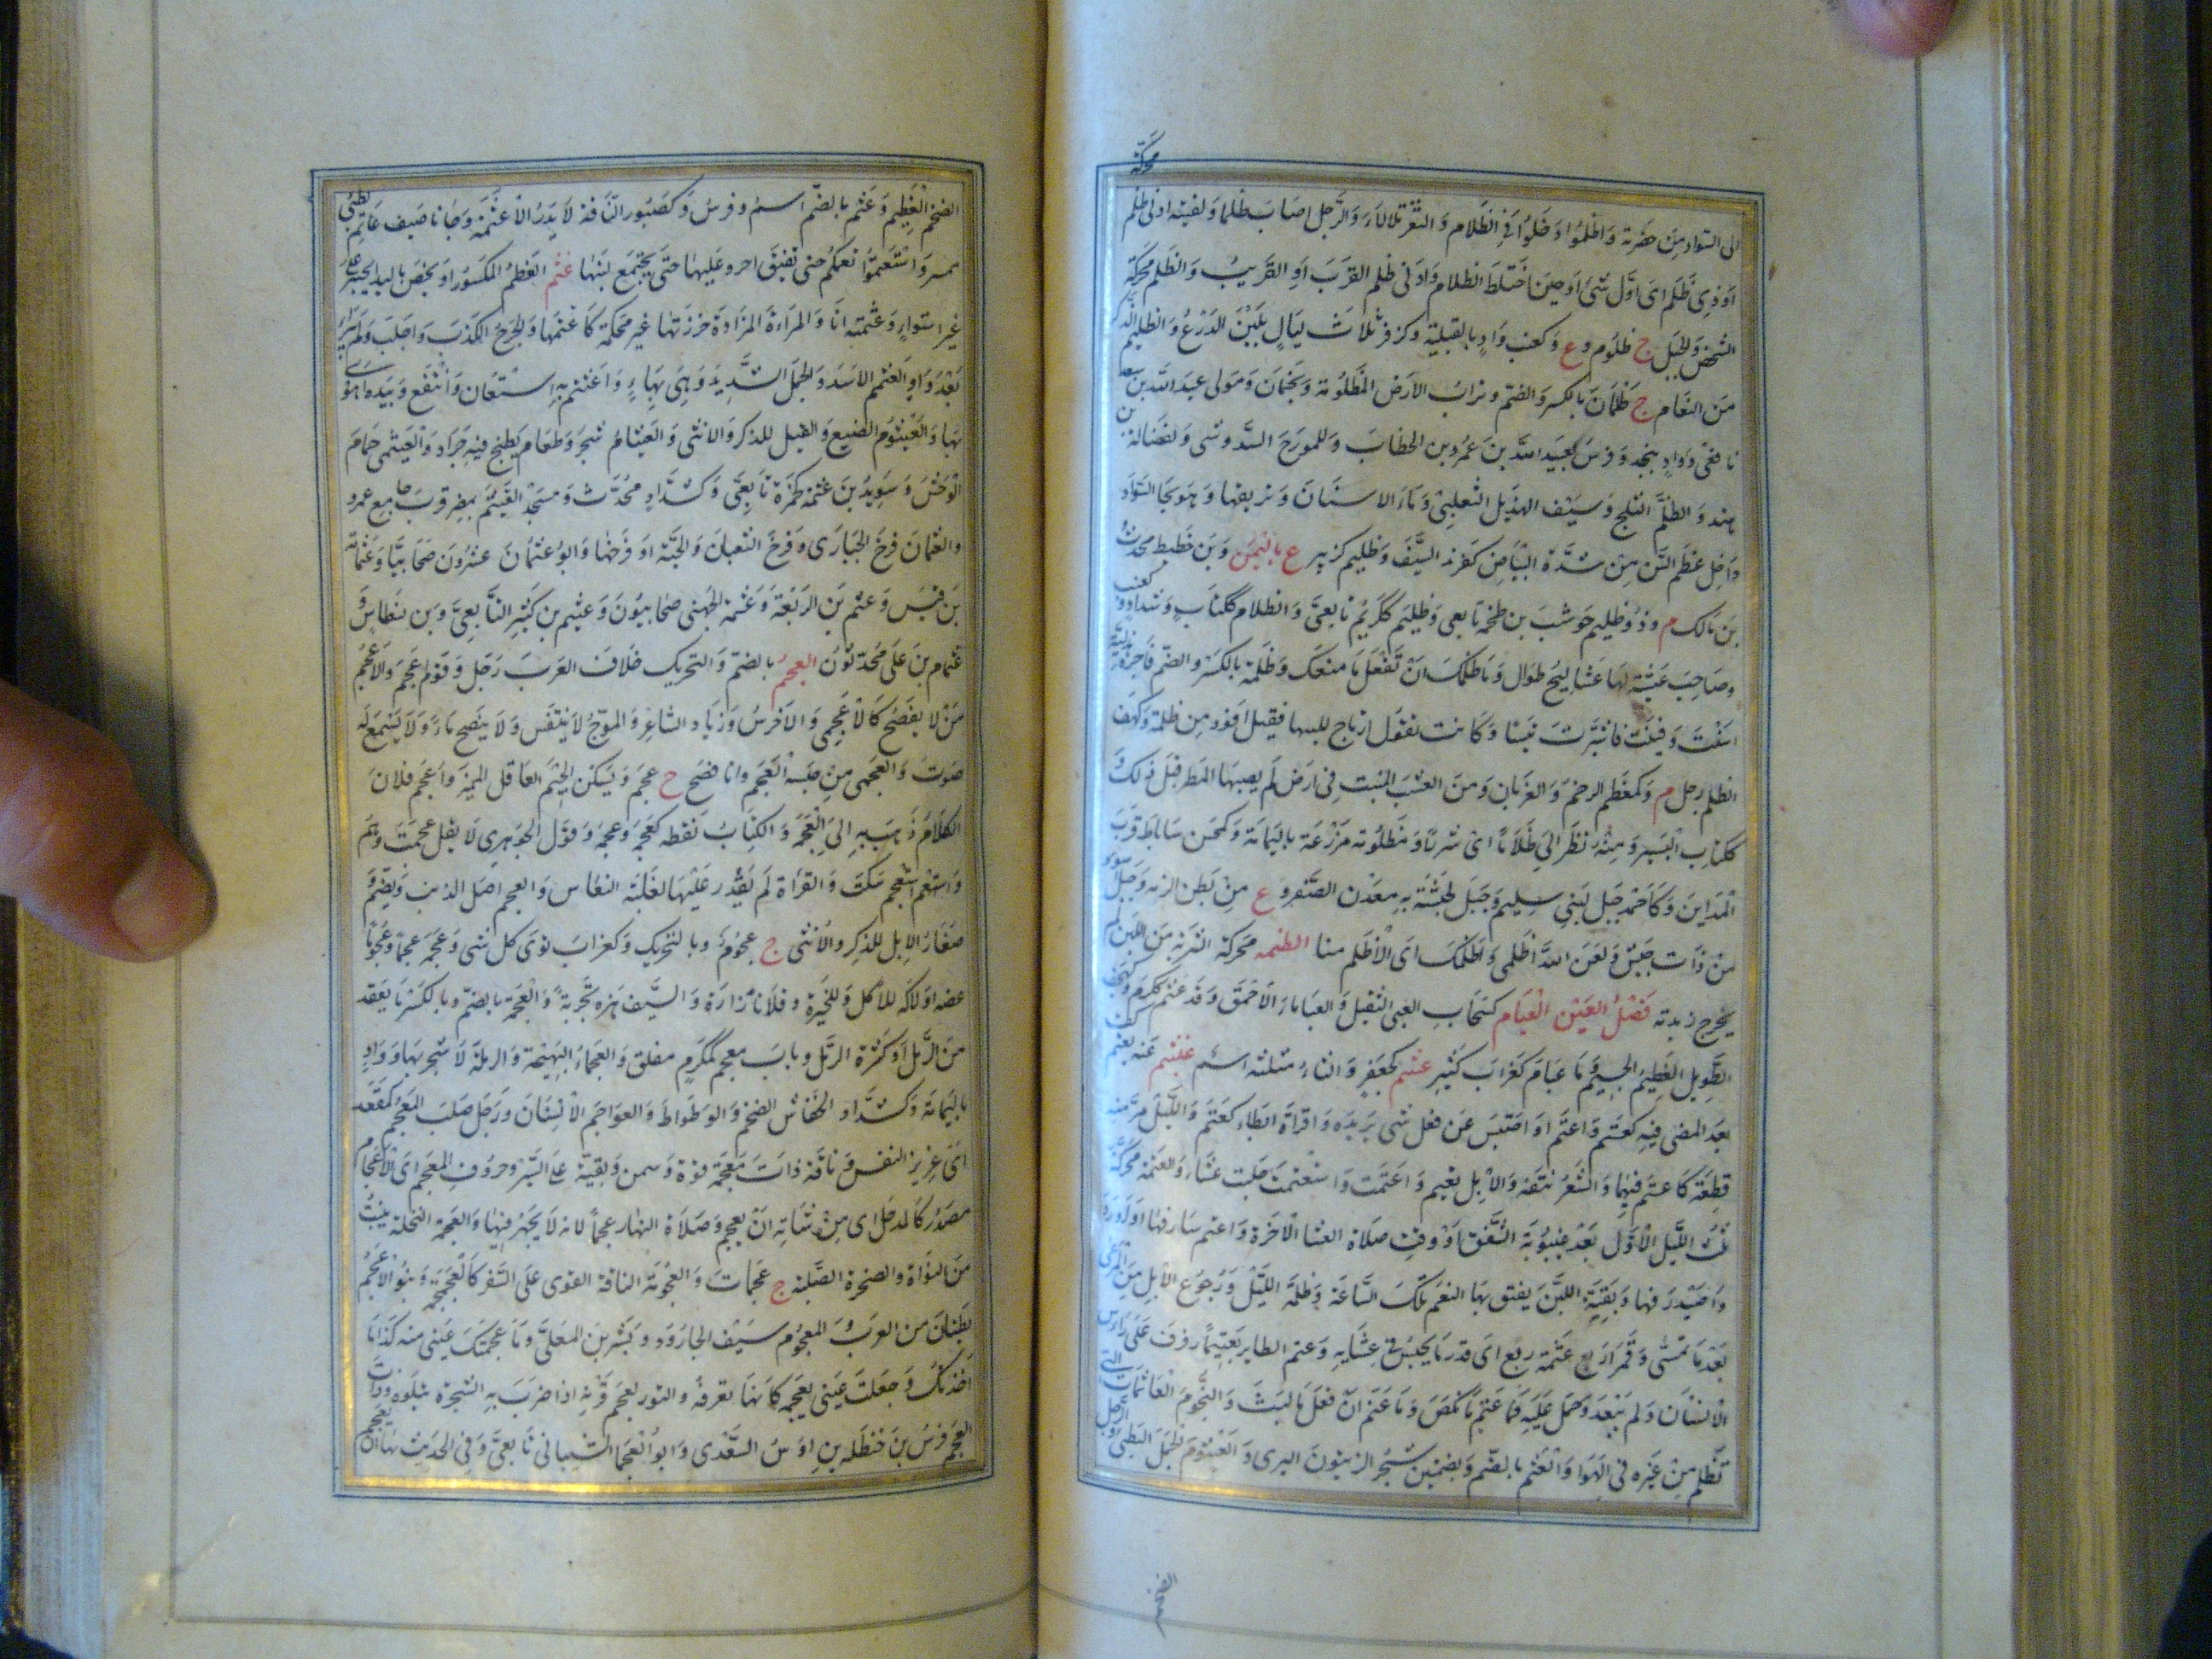 محركة
الى السواد من خضرته واظلموا دخلوا في الظلام والثغر تلالاء والرجل اصاب ظلما ولقيته ادنى ظلم
او ذى ظلم اى اول شئ او حين اختلط الظلام وادنى ظلم القرب او القريب والظلم محركة
الشخص والجبل ج ظلوم و ع وكعنب واد بالقبلية وكزفر ثلاث ليال يلين الدرع والظليم الذكر
من النعام ج ظلمان بالكسر والضم وتراب الارض المظلومة ونجمان ومولى عبد الله بن سعد
تابعى وواد بنجد وفرس لعبيد الله بن عمرو بن الخطاب وللمورج السدوسى ولفضالة بن
هند والظلم الثلج وسيف الهذيل الثعلبى وماء الاسنان وبريقها وهو كالسواد
داخل عظم السن من شدة البياض كفرند السيف وظليم كزبير ع باليمن وبن حطيط محدث
بن مالك م وذو ظليم حوشب بن طخمة تابعى وظليم ككريم تابعى والظلام ككتاب وشداد وعنب
وصاحب عشبة لها عساليج طوال وما ظلمك ان تفعل ما منعك وظلمة بالكسر والضم فاجرة هذلية
اسنت وفنيت فاشترت تيسا وكانت تقول ارتاح لنبيبه فقيل اقود من ظلمة وكهف
الظلم رجل م وكمعظم الرخم والغربان ومن العشب المنبت فى ارض لم يصبها المطر قبل ذلك و
ككتاب اليسير ومنه نظر الى ظلاما اى شزرا ومظلومة مزرعة باليمامة وكمحسن ساباط قرب
المداين وكاحمد جبل لبنى سليم وجبل بالحبشة به معدن الصفر و ع من بطن الرمة وجبل اسود
من ذات جيش ولعن الله اظلمى واظلمك اى الاظلم منا الظنمة محركة الشربة من اللبن لم
يخرج زبدته فصل العين العيام كسحاب العيى الثقيل والعباماء الاحمق وقد عبم ككرم وكهجف
الطويل العظيم الجسيم وماء عبام كغراب كثير عثم كجعفر والثاء مثلثة اسم عتم عنه يعتم كف
بعد المضى فيه كعتم واعتم او احتبس عن فعل شئ يريده وقراه ابطاء كعتم والليل مر منه
قطعة كاعتم فيهما والشعر نتفه والابل تعتم واعتمت واستعتمت حلبت عشاء والعتمة محركة
ثلث الليل الاول بعد غيبوبة الشفق او وقت صلاة العشا الاخرة واعتم سار فيها او اورد
واصدر فيها وبقية اللبن يفيق بها النعم تلك الساعة وظلمة الليل ورجوع الابل من المرعى
بعد ما تمسى وقمراء اربع عتمة ربع اى قدر ما يحتبس فى عشايه وعتم الطاير تعتيما رفرف على راس
الانسان ولم يبعد وحمل عليه فما عتم ما نكص وما عتم ان فعل ما لبث والنجوم العاتمات التى
تظلم من غبرة فى الهوا والعتم بالضم وبضمتين شجر الزيتون البرى والعيثوم الجمل البطى والرجل
الضخم
الضخم العظيم وعتم بالضم اسم وفرس وكصبور الناقة لا يدر الا عتمة وجانا ضيف عاتم بطئ
ممسر واستعتموا نعمكم حتى تفيق اخروا حلبها حتى يجتمع لبنها عثم العظم المكسور او يخص باليد انجبر على
غير استواء وعثمته انا والمراءة المزادة خرزتها غير محكمة كاعثمتها والجرح اكنب واجلب ولم يبرء
بعد والعثمثم الاسد والجمل الشديد وهى بهاء واعتثم به استعان وانتفع وبيده اهوى
بها والعيثوم الضبع والفيل للذكر والانثى والعيثام شجر وطعام يطبخ فيه جراد والعيثمى حمار
الوحش وسويد بن عثمة كحمزة تابعى وكشداد محدث ومسجد العيثم بمصر قرب جامع عمرو
والعثمان فرخ الحبارى وفرخ الثعبان والحية او فرخها وابو عثمان عشرون صحابيا وعثامة
بن قيس وعثم بن الربعة وعثمة الجهنى صحابيون وعثيم بن كثير التابعى وبن نسطاس و
عثام بن على محدثون العجم بالضم والتحريك خلاف العرب رجل وقوم اعجم والاعجم
من لا يفصح كالاعجمى والاخرس وزياد الشاعر والموج لا يتنفس ولا ينضح ماء ولا يسمع له
صوت والعجمى من جنسه العجم وان افصح ج عجم وبسكن الجيم العاقل المميز واعجم فلان
الكلام ذهب به الى العجمة والكتاب نقطه كعجمه وعجمه وقول الجوهرى لا تقل عجمت وهم
واستعجم سكت والقراءة لم يقدر عليها لغلبة النعاس والعجم اصل الذنب ويضم و
صغار الابل للذكر والانثى ج عجوم وبالتحريك وكغراب نوى كل شئ وعجمه عجما وعجوما
عضه او لاكه للاكل وللخبرة وفلانا رازه والسيف هزه تجربة والعجمة بالضم وبالكسر ما تعقد
من الرمل او كثرة الرمل وباب معجم كمكرم مقفل والعجماء البهيمة والرملة لا شجر بها وواد
باليمامة وكشداد الخفاش الضخم والوطواط والعواجم الاسنان ورجل صلب المعجم كمقعد
اى عزيز النفس وناقة ذات معجمة قوة وسمن وبقية على السير وحروف المعجم اى الاعجام
مصدر كالمدخل اى من شانه ان يعجم وصلاة النهار عجماء لانه لا يجهر فيها والعجمة النخلة تنبت
من النواة والصخرة الصلبة ج عجمات والعجومة الناقة القوى على السفر كالعجمجمة وبنو الاعجم
بطنان من العرب والمعجوم سيف الجارود وبشر بن المعلى وما عجمتك عينى منذ كذا ما
اخذتك وجعلت عينى تعجمه كانها تعرفه والثور يعجم قرنه اذا ضرب به الشجرة يبلوه وذات
العجم فرس بن حنظلة بن اوس السعدى وابو العجماء الشيبانى تابعى وفى الحديث نهانا ان نعجم